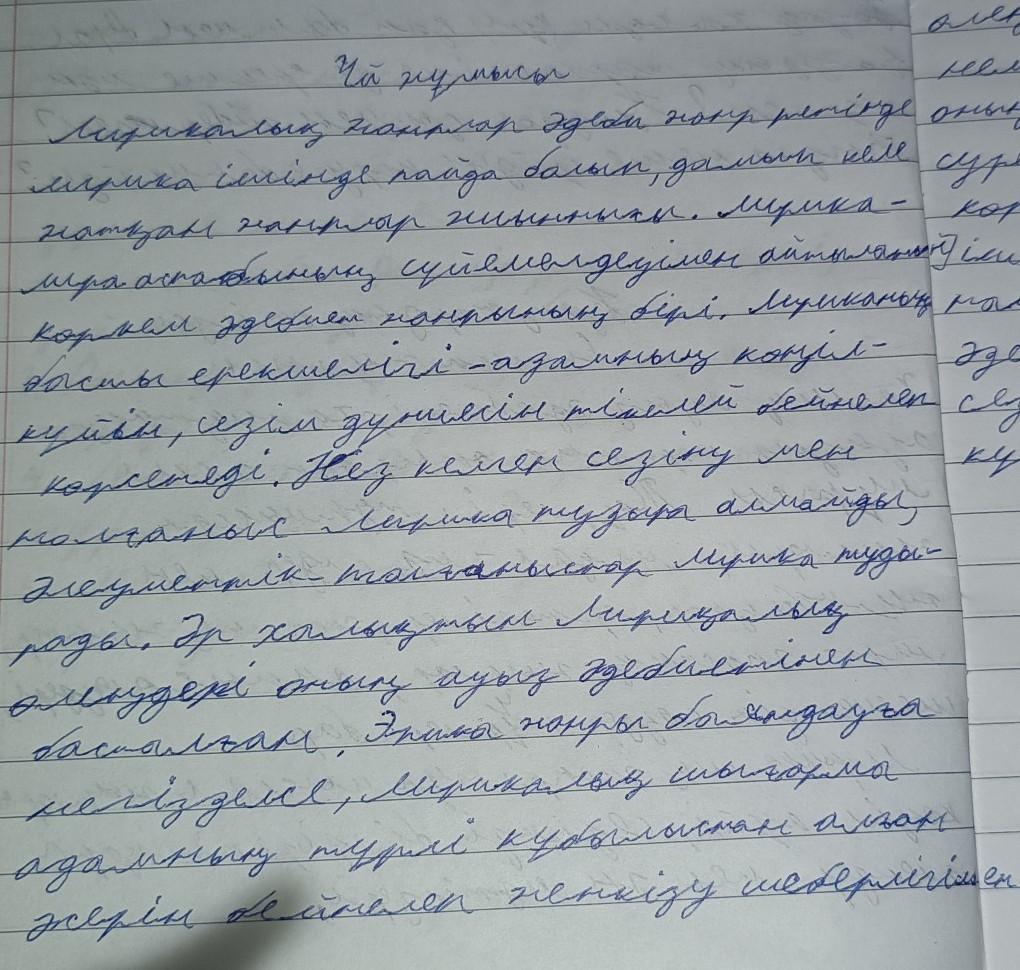 Үй жұмысы
Лирикалық жанрлар әдеби жанр ретінде
лирика ішінде пайда болып, дамып келе
жатқан жанрлар жиынтығы. Лирика-
лира аспабының сүйемелдеуімен айтылатын
көркем әдебиет жанрының бірі. Лириканың
басты ерекшелігі - адамның көңіл-
күйін, сезім дүниесін тікелей бейнелеп
көрсетеді. Кез келген сезіну мен
толғаныс лирика тудыра алмайды,
әлеуметтік толғаныстар лирика туды-
рады. Әр халықтың лирикалық
өлеңдері оның ауыз әдебиетінен
басталған. Эпика жанры баяндауға
негізделсе, лирикалық шығарма
адамның түрлі құбылыстан алған
әсерін бейнелеп жеткізу шеберлігімен